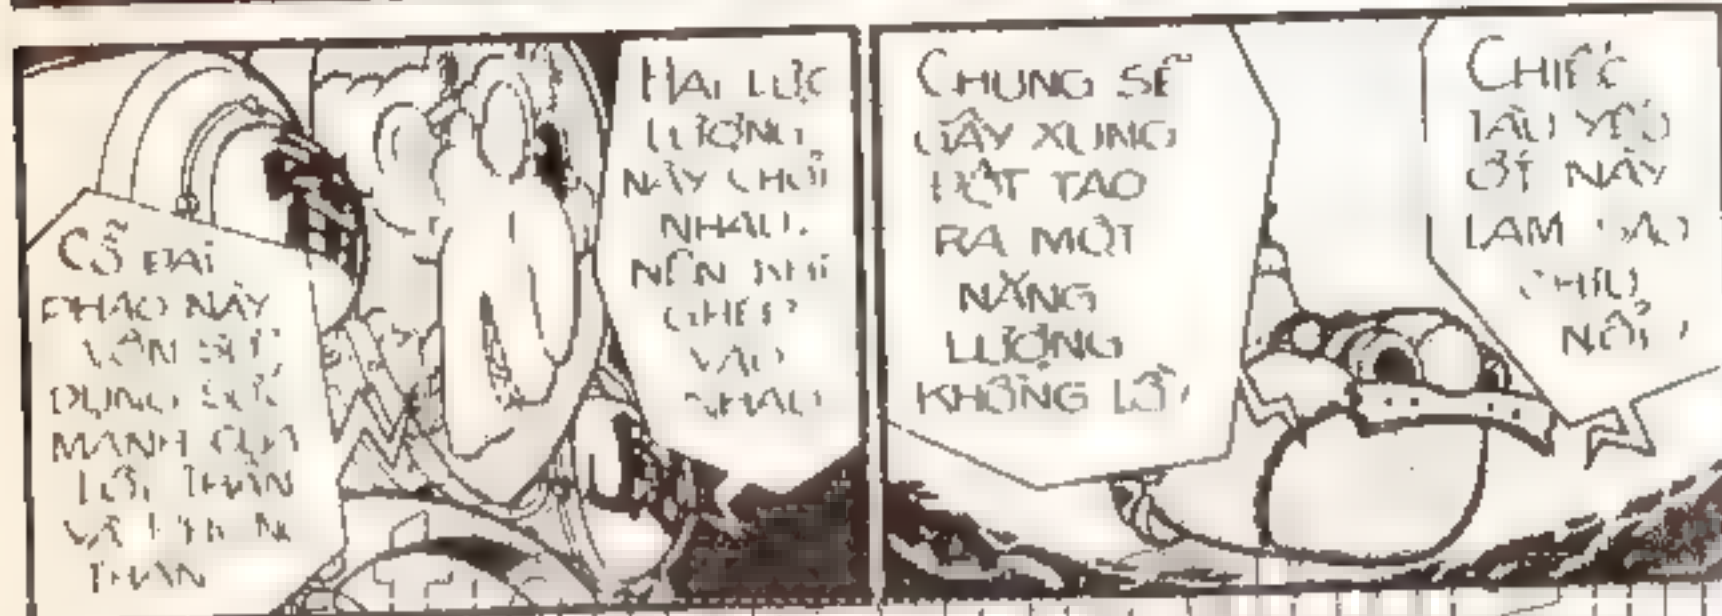 CỖ ĐẠI
PHÁO NÀY
VỐN SỬ
DỤNG SỨC
MẠNH CỦA
LÔI THẦN
VÀ
THẦN
HAI LỰC
LƯỢNG
NÀY CHỎI
NHAU.
NÊN KHI
GHÉP
VÀO
NHAU
CHÚNG SẼ
GÂY XUNG
ĐỘT TẠO
RA MỘT
NĂNG
LƯỢNG
KHỔNG LỒ!
CHIẾC
TÀU YẾU
ỚT NÀY
LÀM SAO
CHỊU
NỔI!